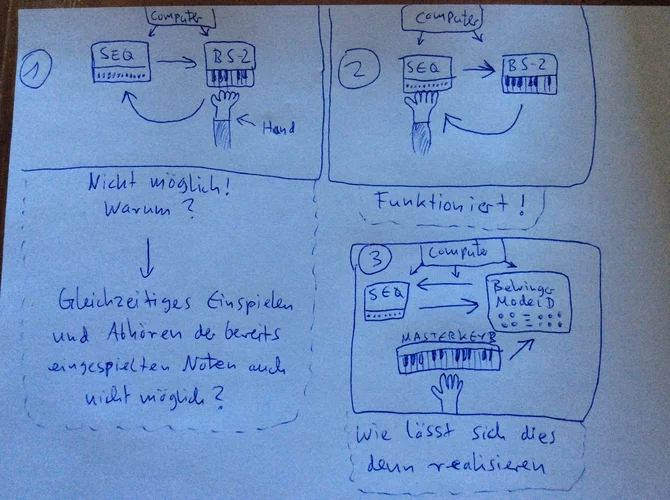 1
Computer
SEQ
BS-2
Hand
Nicht möglich!
Warum?
Gleichzeitiges Einspielen
und Abhören der bereits
eingespielten Noten auch
nicht möglich?
2
Computer
SEQ
BS-2
Funktioniert!
3
Computer
SEQ
Behringer
Model D
MASTERKEYB
Wie lässt sich dies
denn realisieren